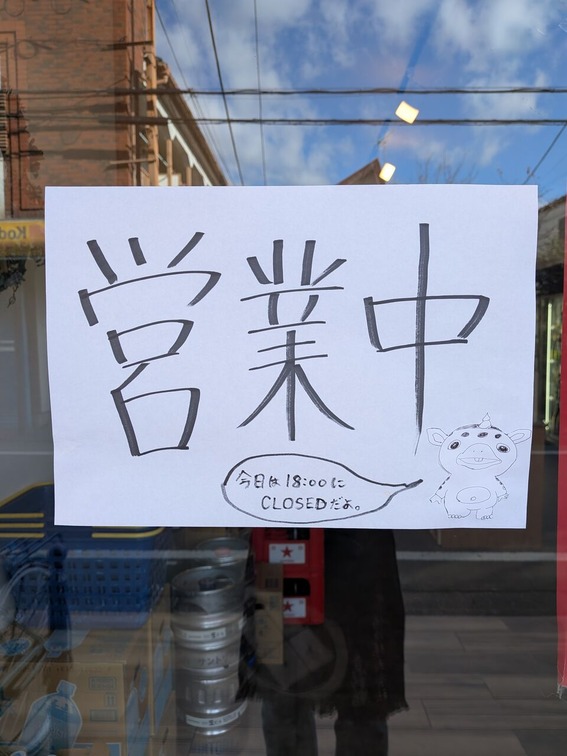 営業中
今日は18:00に
CLOSEDだよ。